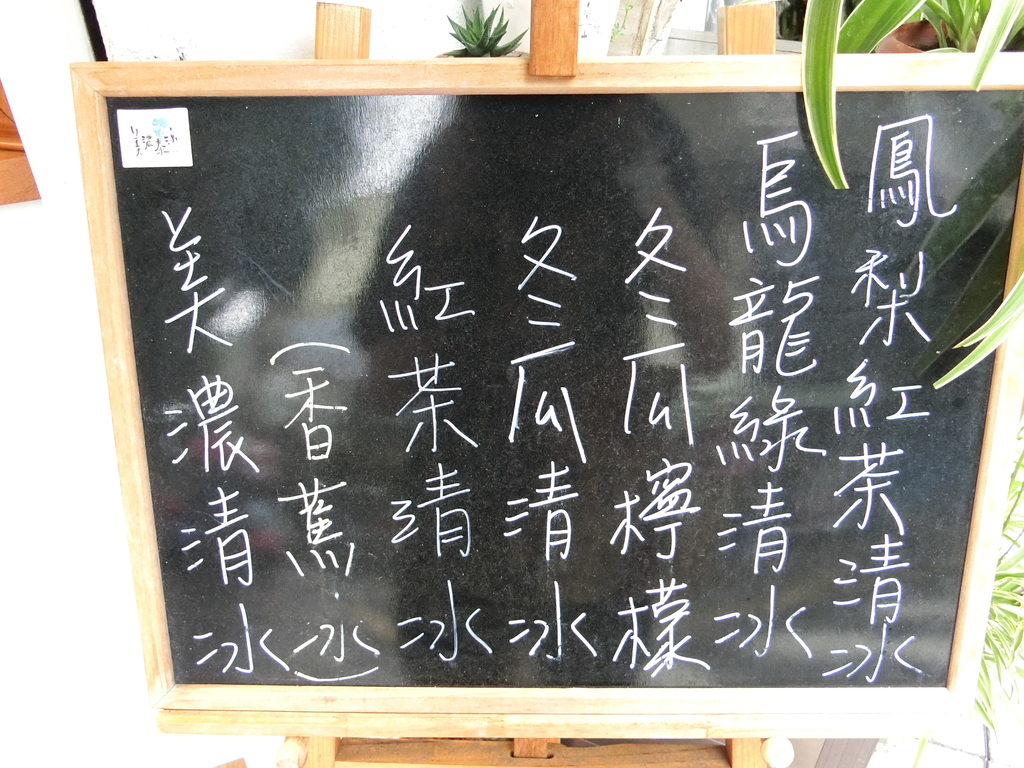 鳳梨紅茶清冰
烏龍綠清冰
冬瓜檸檬
冬瓜清冰
紅茶清冰
(香蕉冰)
美濃清冰